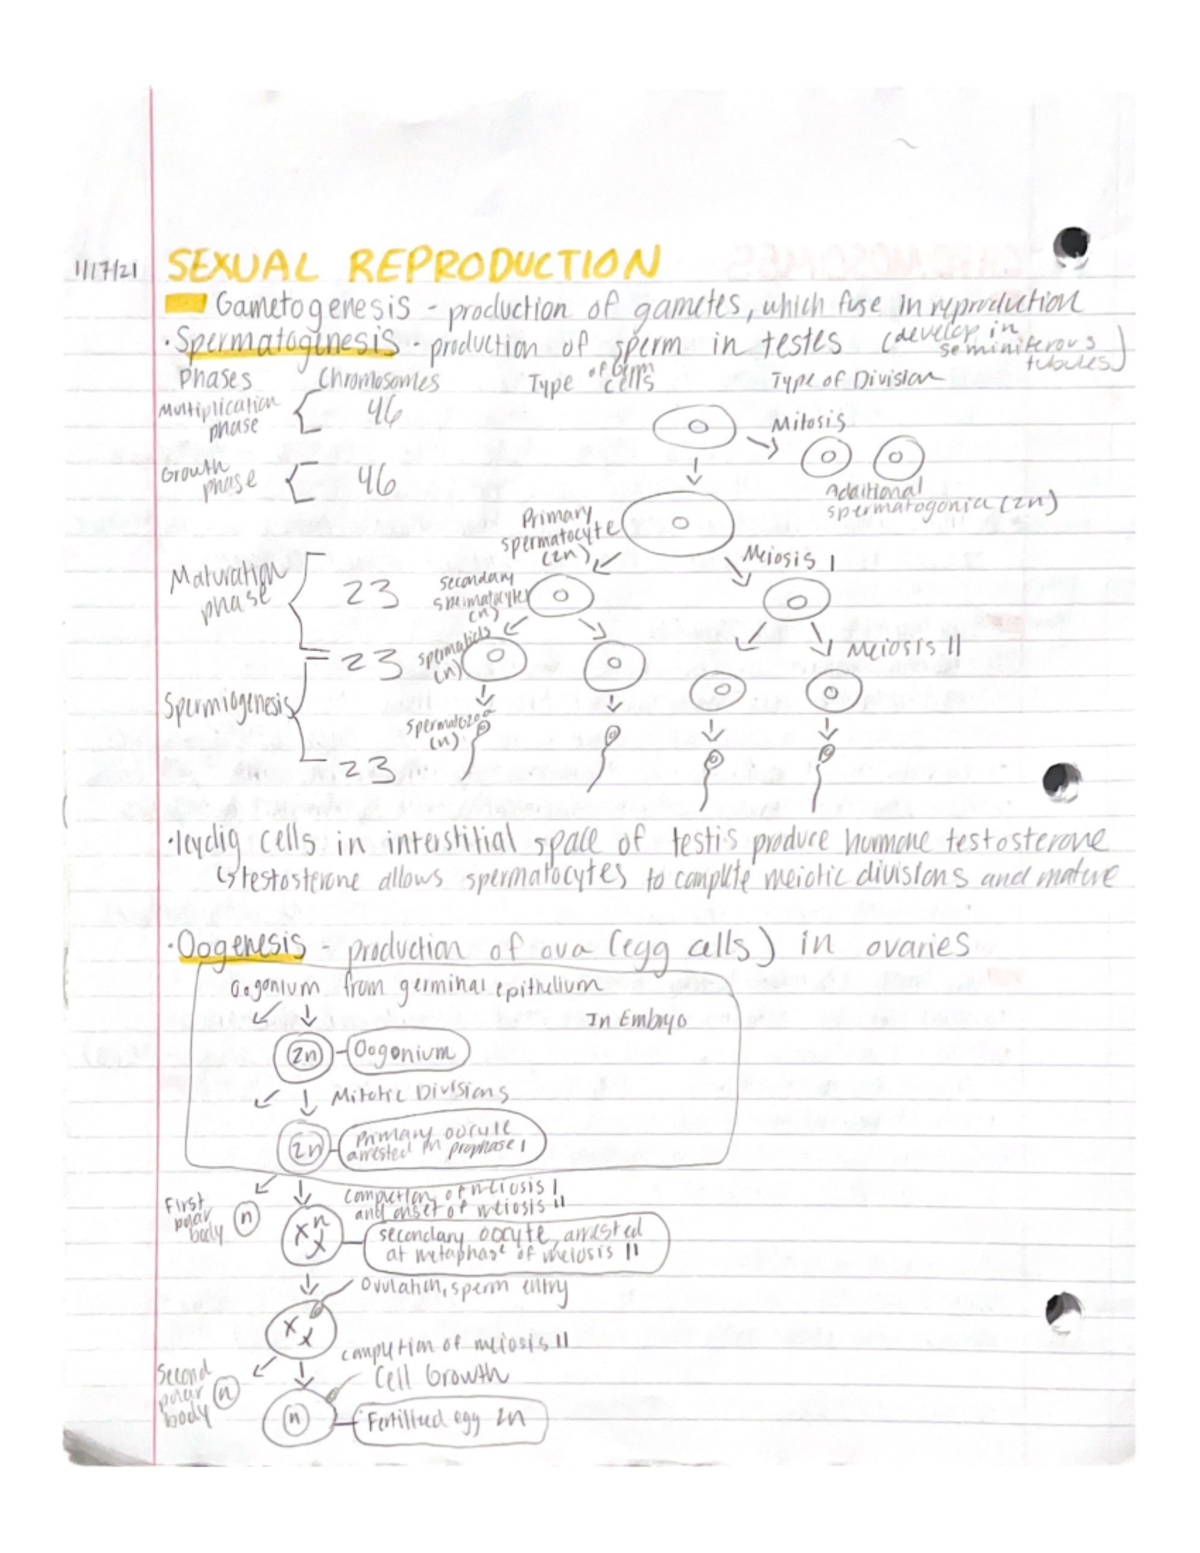 11/17/21 SEXUAL REPRODUCTION
Gametogenesis - production of gametes, which fuse in reproduction
· Spermatogenesis - production of sperm in testes (develop in seminiferous tubules)
Phases Chromosomes Type of Germ cells Type of Division
Multiplication phase 46
Mitosis
Growth phase 46
Additional spermatogonia (2n)
Primary spermatocyte (2n)
Meiosis I
Maturation phase 23
secondary spermatocytes (n)
= 23 spermatids (n)
Meiosis II
Spermiogenesis
spermatozoa (n)
23
· leydig cells in interstitial space of testis produce hormone testosterone
↳ testosterone allows spermatocytes to complete meiotic divisions and mature
· Oogenesis - production of ova (egg cells) in ovaries
Oogonium from germinal epithelium
In Embryo
2n - Oogonium
Mitotic Divisions
2n - primary oocyte
arrested in prophase I
First polar body n
completion of meiosis I
and onset of meiosis II
n
secondary oocyte, arrested
at metaphase of meiosis II
Ovulation, sperm entry
completion of meiosis II
Second polar body n
Cell Growth
n
Fertilized egg 2n